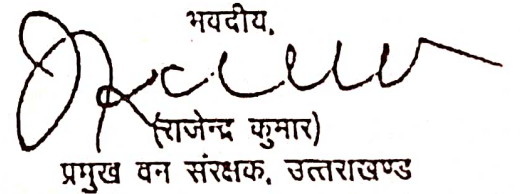 भवदीय,
(राजेन्द्र कुमार)
प्रमुख वन संरक्षक, उत्तराखण्ड